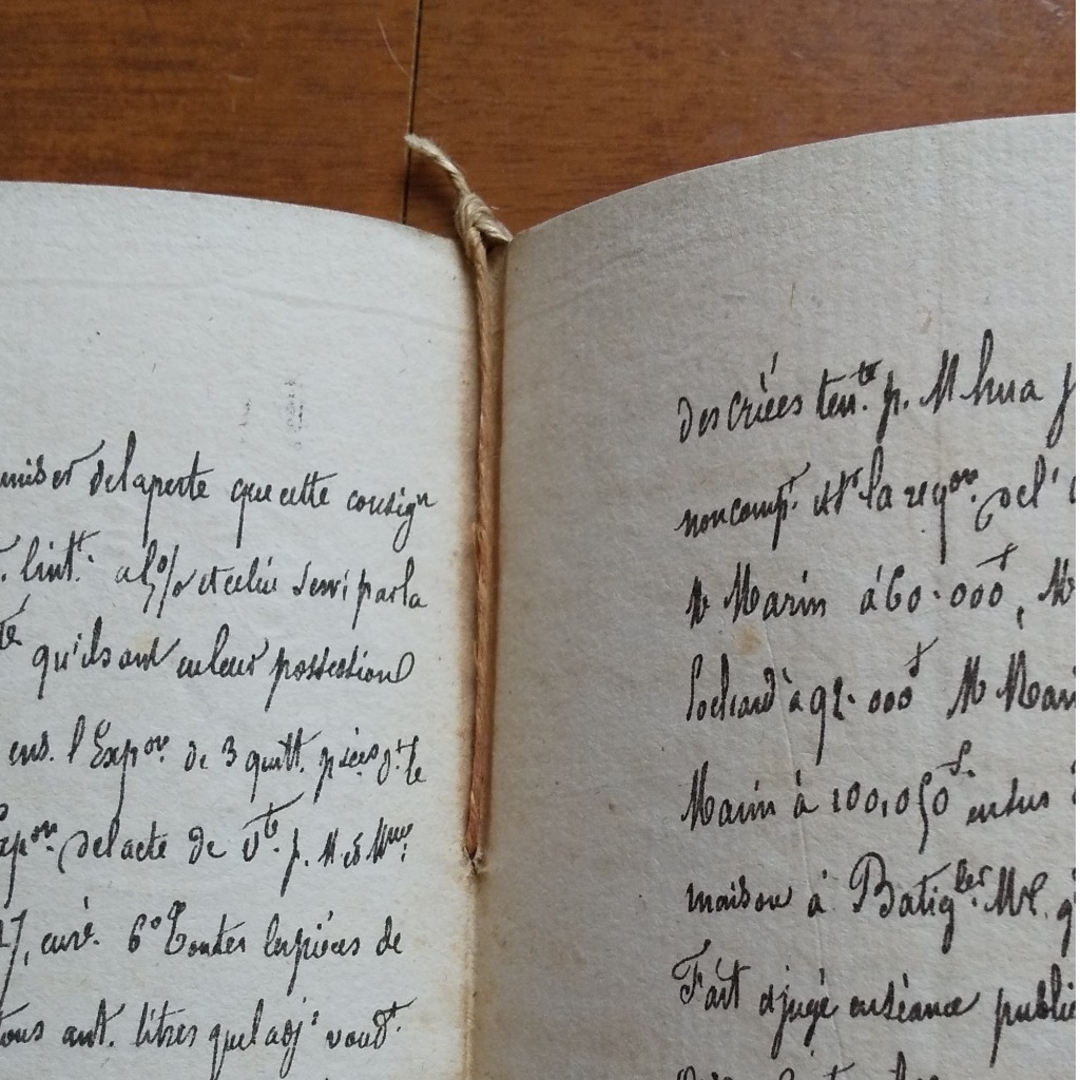 de la perte que cette consign
. l'int.t a 5 % et celui servi par la
té qu'ils ont en leur possession
ens. l'Exp.on de 3 quitt. pièces d.t le
Exp.on de l'acte de v.te p. M et Mme
27, enré. 6° Toutes les pièces de
tous ant. titres que l'adj.e voud.t
des criées ten.te p. M hua j
non comp.t et la req.on de l'
M Marin à 60.000f, M
à 92.000f M Mari
Marin à 100,050f. en sus
maison à Batig.les M.
Fait ajugé en séance publi